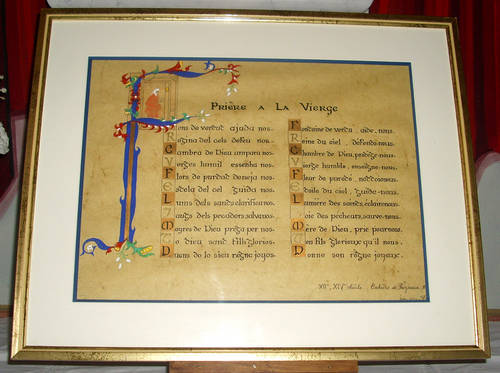 Prière a La Vierge
de verdut ajuda nos
Regina del cels defen nos.
Cambra de Dieu ampara nos
Verges humil essenha nos.
Flors de purdat doneja nos
Estela del cel guida nos
Lums dels sands clarifica nos.
Gaugs dels peccadors, salva nos.
Mayres de Dieu priga per nos.
To dieu sand filh glorios.
Quens do lo sieu règne joyos.
Fontaine de vertu, aide-nous.
Reine du ciel, défends-nous.
Chambre de Dieu, protège-nous.
Vierge humble, enseigne-nous.
Fleur de pureté,
Etoile du ciel, guide-nous.
Lumière des saints, éclaire-nous.
Joie des pécheurs, sauve-nous.
Mère de Dieu, prie pour nous.
Ton fils glorieux qu'il nous.
Donne son règne joyeux.
XIIIe, XIVe siècle,